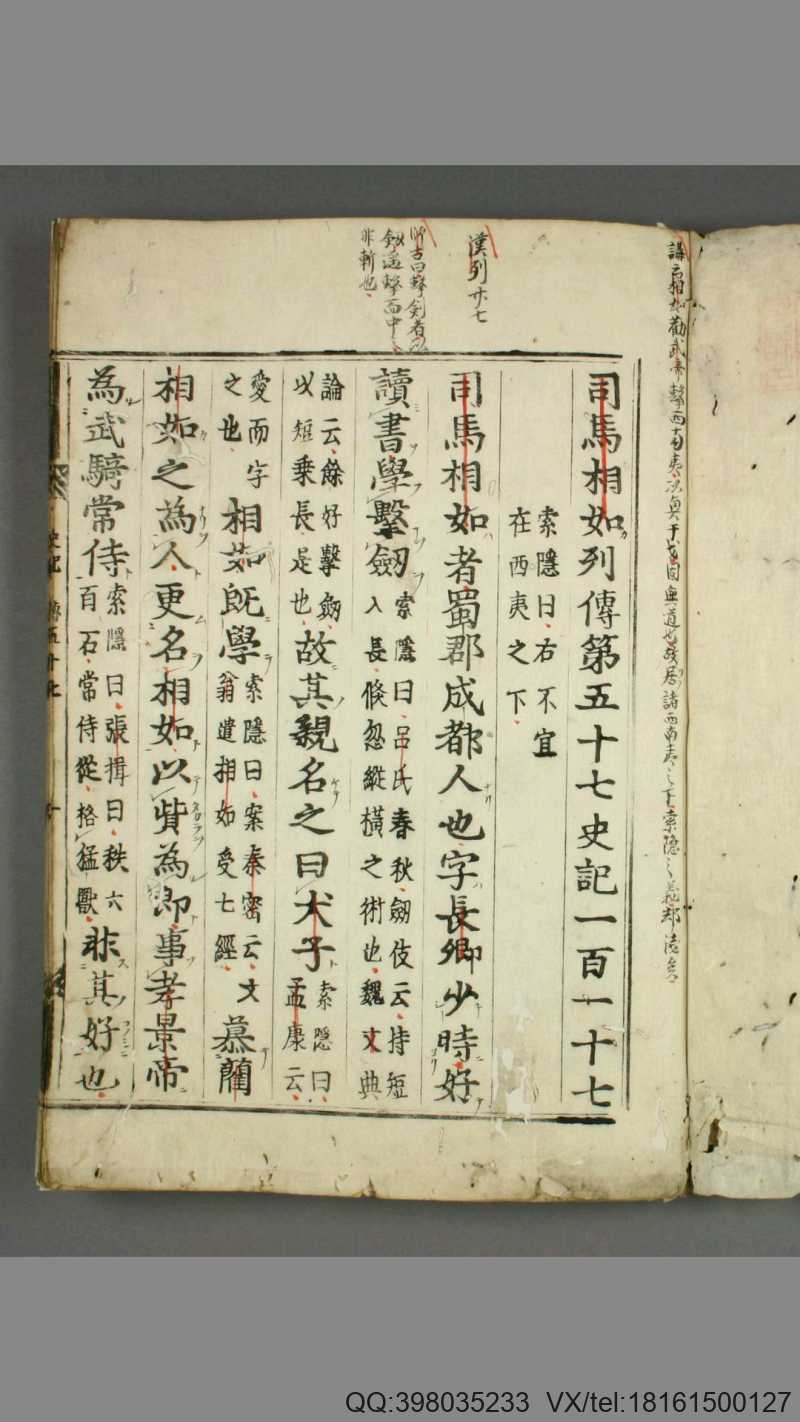 漢列廿七
司馬相如列傳第五十七史記一百一十七
索隱曰右不宜
在西夷之下
司馬相如者蜀郡成都人也字長卿少時好
讀書學擊劒索隱曰呂氏春秋劒伎云持短
入長倏忽縱橫之術也魏文典
論云餘好擊劒
以短乗長是也故其親名之曰犬子索隱曰
孟康云
愛而字
之也相如既學索隱曰案秦密云文
翁遣相如受七經慕藺
相如之為人更名相如以貲為郎事孝景帝
為武騎常侍索隱曰張揖曰秩六
百石常侍從格猛獸非其好也
QQ:398035233 VX/tel:18161500127